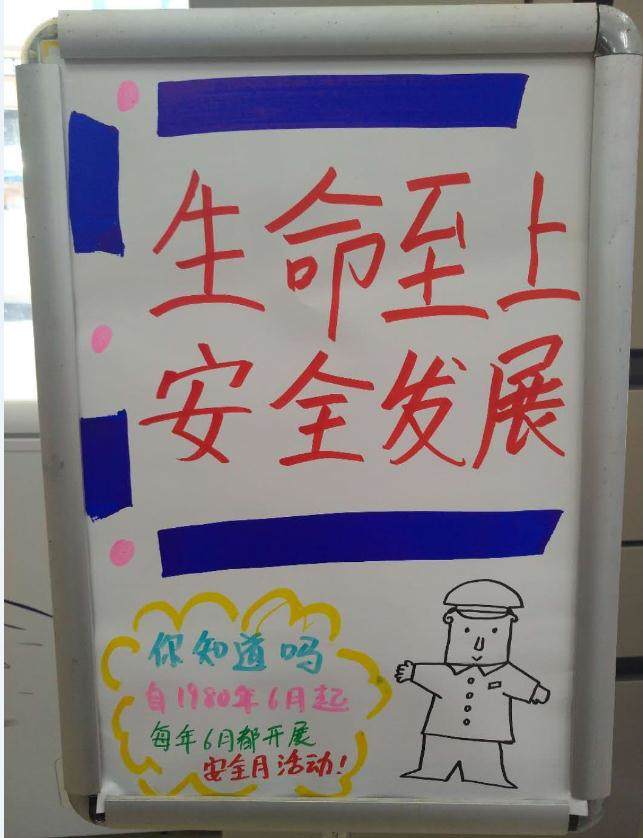 生命至上
安全发展
你知道吗
自1980年6月起
每年6月都开展
安全月活动!